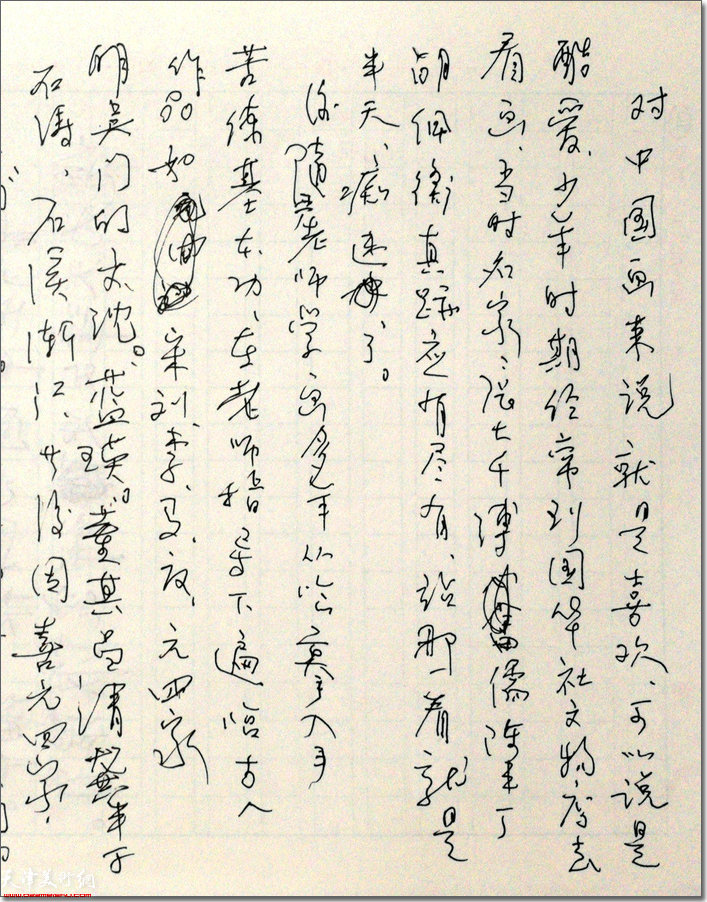 对中国画来说就是喜欢、可以说是
酷爱、少年时期经常到国华社文物店去
看画、当时名家、张大千溥儒陈半丁
胡佩衡真迹应有尽有、站那一看就是
半天、痴迷了。
后随老师学画多年从临摹入手
苦练基本功、在老师指导下遍临古人
作品如宋刘、李、马、夏、元四家
明吴门的文沈。蓝瑛。董其昌清龚半千
石涛、石溪渐江、
因喜元四家、